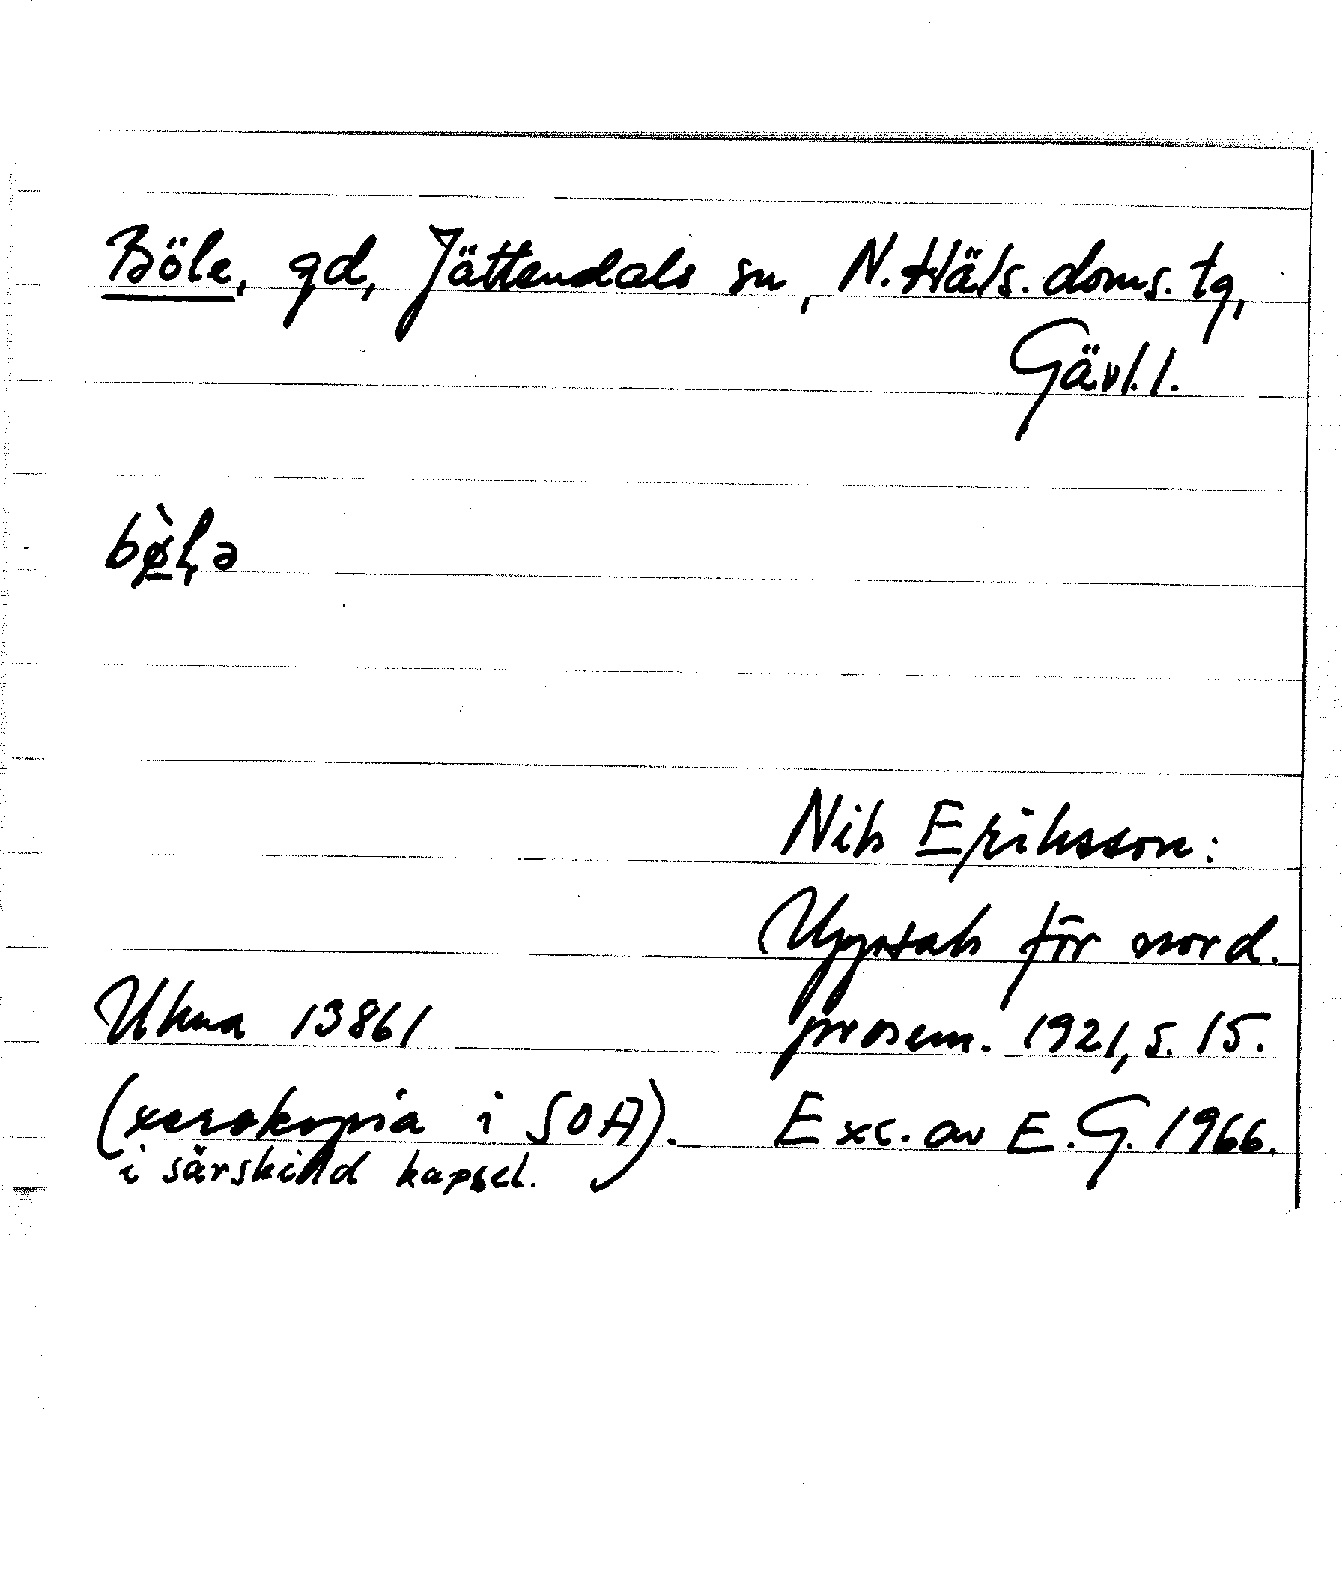 Böle, gd, Jättendals sn, N. Häls. doms. tg,
Gävl. l.
bø̀l̩ə
Nils Eriksson:
Uppsats för nord.
prosem. 1921, s. 15.
Ukna 13861
(xerokopia i SOA).
i särskild kapsel.
Exc. av E. G. 1966.